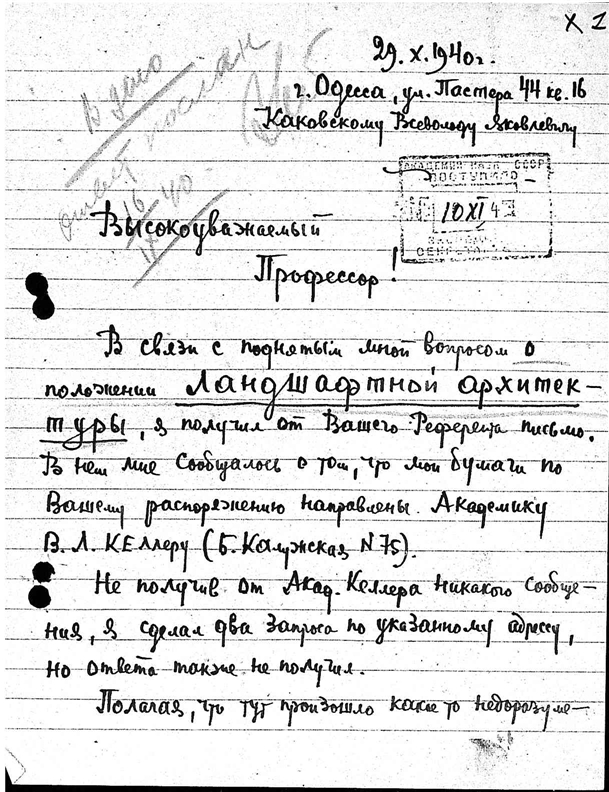 X 1
29.X.1940г.
г. Одесса, ул. Пастера 44 кв. 16
Каковскому Всеволоду Яковлевичу
В дело
ответ послан
16
IX 40
АКАДЕМИЯ НАУК СССР
ПОСТУПИЛО
10 XI 4
Высокоуважаемый
Профессор!
В связи с поднятым мной вопросом о
положении Ландшафтной архитек-
туры, я получил от Вашего Референта письмо.
В нем мне сообщалось о том, что мои бумаги по
Вашему распоряжению направлены Академику
В. Л. КЕЛЛЕРУ (Б. Калужская N 75).
Не получив от Акад. Келлера никакого сообще-
ния, я сделал два запроса по указанному адрессу,
но ответа также не получил.
Полагая, что тут произошло какое то недоразуме-